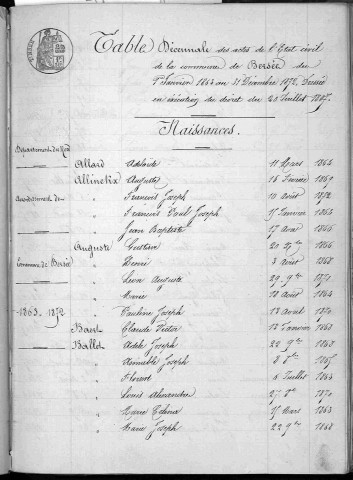 Table Décennale des actes de l'Etat civil
de la commune de Bersée du
1er Janvier 1863 au 31 Décembre 1872. Dressée
en exécution du décret du 20 Juillet 1807.
Naissances.
Département du Nord
Allard Adelaïde 11 Mars 1864
Auguste 16 1869
Arrondissement de " François Joseph 10 Août 1872
" François Paul Joseph 15 Janvier 1863
" Jean Baptiste 17 Avril 1866
Auguste Gustave 20 9bre 1866
Commune de Bersée " Henri 3 Août 1868
" Léon Auguste 29 9bre 1871
" Marie 18 Août 1864
1863. 1872 " Pauline Joseph 13 Août 1870
Baert Claude Victor 12 Janvier 1868
Ballot Adèle Joseph 22 9bre 1863
" Aimable Joseph 3 1865
" Florent 6 Juillet 1863
" Louis Alexandre 27 1870
" Marie 15 Mars 1863
" Marie Joseph 22 9bre 1868